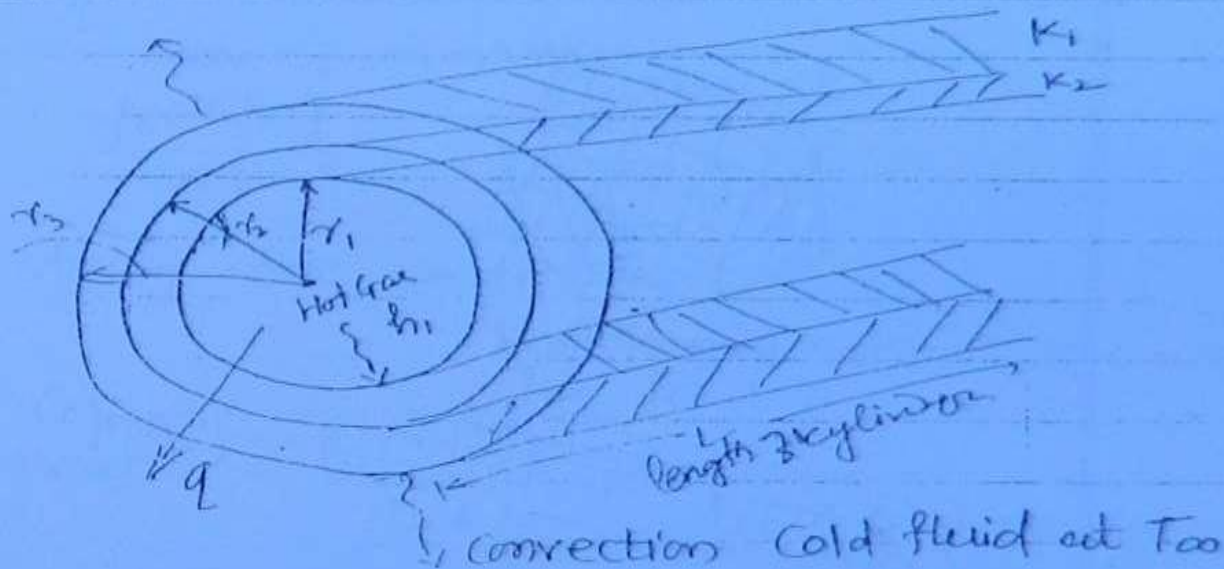 K₁
K₂
r₃
r₂
r₁
Hot Gas
h₁
q
L
length
convection Cold fluid at T∞